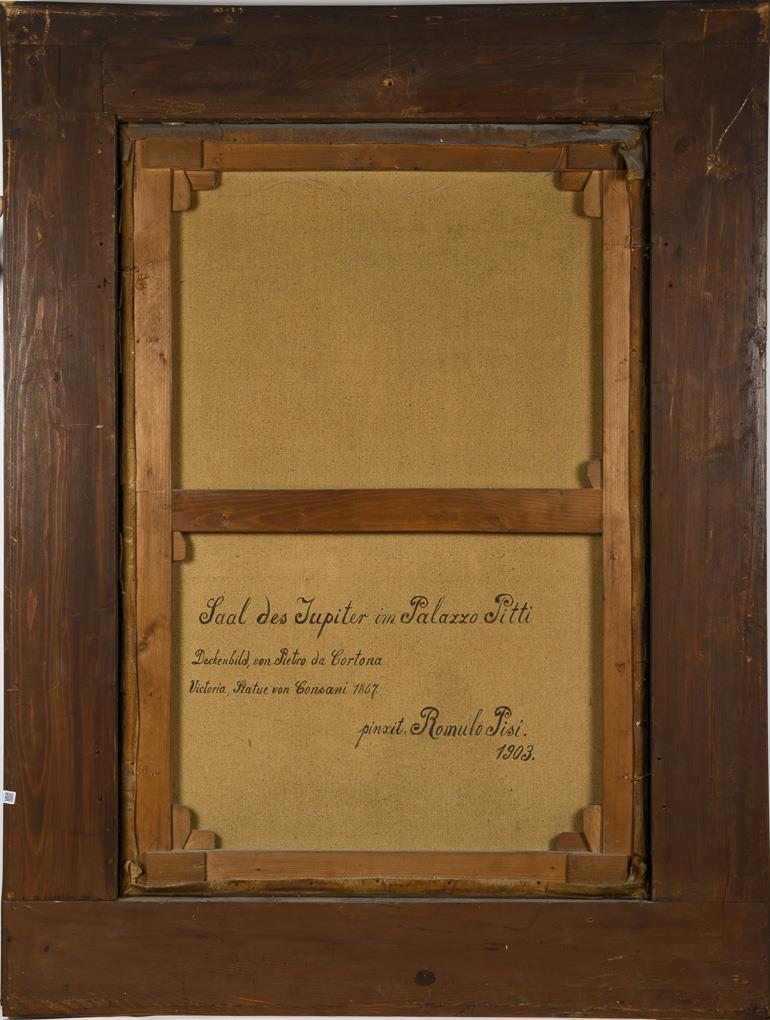 Saal des Jupiter im Palazzo Pitti
Deckenbild, von Pietro da Cortona
Victoria, Statue von Consani 1867.
pinxit. Romulo Pisi.
1903.